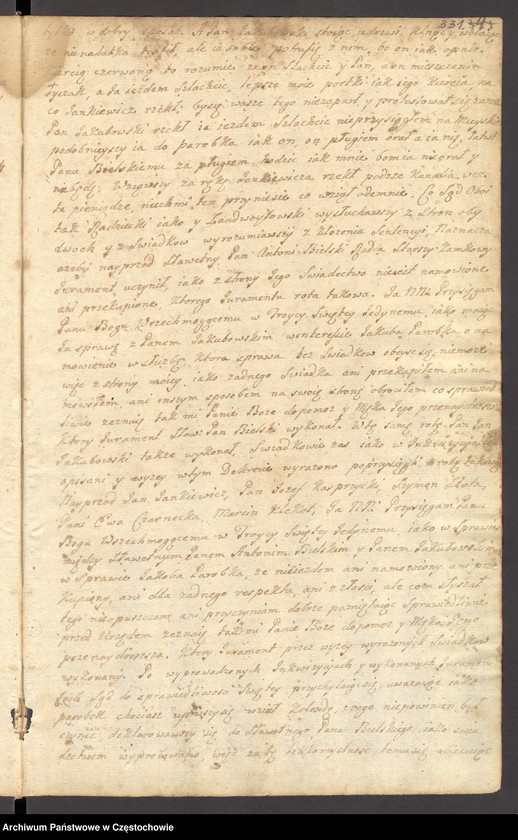 331
tylko w dobry sposób. A Pan Jakubowski stojąc
że nienadakka trafił, ale ia sobie potrafię z nim, bo on iak opnie
czerwoną to rozumie że on Szlachcic y Pan, a on mieszczanin
łyczak, a Ja iezdem Szlachcic, lepsze moie portki iak iego
co Jankiewicz rzekł, byś wasze tego niezaparł, y protestował się zaraz
Pan Jakubowski rzekł ia iezdem Szlachcic nieprzysięgłem na Mieyskie
podobnieyszy ia do parobka iak on, on pługiem orał a ia nie,
Panu Bielskiemu za pługiem chodzić iak mnie
nigdy. Wziąwszy za rękę Jankiewicza rzekł podźże
ta pieniądze, niechmi ten przyniesie co wziął odemnie. Co Sąd Oboi
tak Radziecki iako y Landwoytowski wysłuchawszy z Stron oby
dwoch y z Swiadkow wyrozumiawszy z złożenia Sentencyi, Naznacza
ażeby nayprzod Sławetny Pan Antoni Bielski Radca Starszy Zamkowy
Jurament uczynił, iako z strony Jego Swiadectwo niesą namowione
ani przekupione, ktorego Juramentu rota takowa. Ja NN Przysięgam
Panu Bogu Wszechmogącemu w Troycy Swiętey Jedynemu, iako maiąc
Ja sprawę z Panem Jakubowskim względem Jakuba Parobka o na
mowienie w służbę, ktora sprawa bez Swiadkow obeyść się niemoże
więc z strony moiey, iako żadnego Swiadka ani przekupiłem ani na
mowiłem, ani inszym sposobem na swoię stronę obrociłem co sprawied
liwie zeznaię tak mi Panie Boże dopomoż y Męka Jego przenaydroższa
Ktory Jurament Sław: Pan Bielski wykonał. Wtę samą rotę Pan Jan
Jakubowski także wykonał, Swiadkowie zas iako w Inkwizycyach
opisani y wyżey wtym Dekrecie wyrażono poprzysięgli w rotę takową
Nayprzod Jan Jankiewicz, Pan Jozef Kasprzycki Szymon Złota,
Pani Ewa Czarnecka, Marcin Klekot, Ja NN Przysięgam Panu
Bogu Wszechmogącemu w Troycy Swiętey Jedynemu, iako w Sprawie
między Sławetnym Panem Antonim Bielskim y Panem Jakubowskim
w Sprawie Jakuba Parobka, że nieiezdem ani namowiony ani prze
kupiony, ani dla żadnego respektu, ani z złości, ale com słyszał
tego nieopuszczam ani przyczyniam dobrze pamiętaiąc Sprawiedliwie
przed Urzędem zeznaię tak mi Panie Boże dopomoż y Męka Jego
przenaydroższa. Ktory Jurament przez wyżey wyrażonych Swiadkow
wykonany. Po wyprowadzonych Inkwizycyach y wykonanych Juramen
tach Sąd do sprawiedliwości Swiętey przychylaiąc się, uważaiąc iako
parobek chociasz wziął Kolendę, z tego niepowinien był
czynić, deklarowawszy się do Sławetnego Pana Bielskiego, iako swia
dectwem wyprobowano, więc za tę lekkomyslność